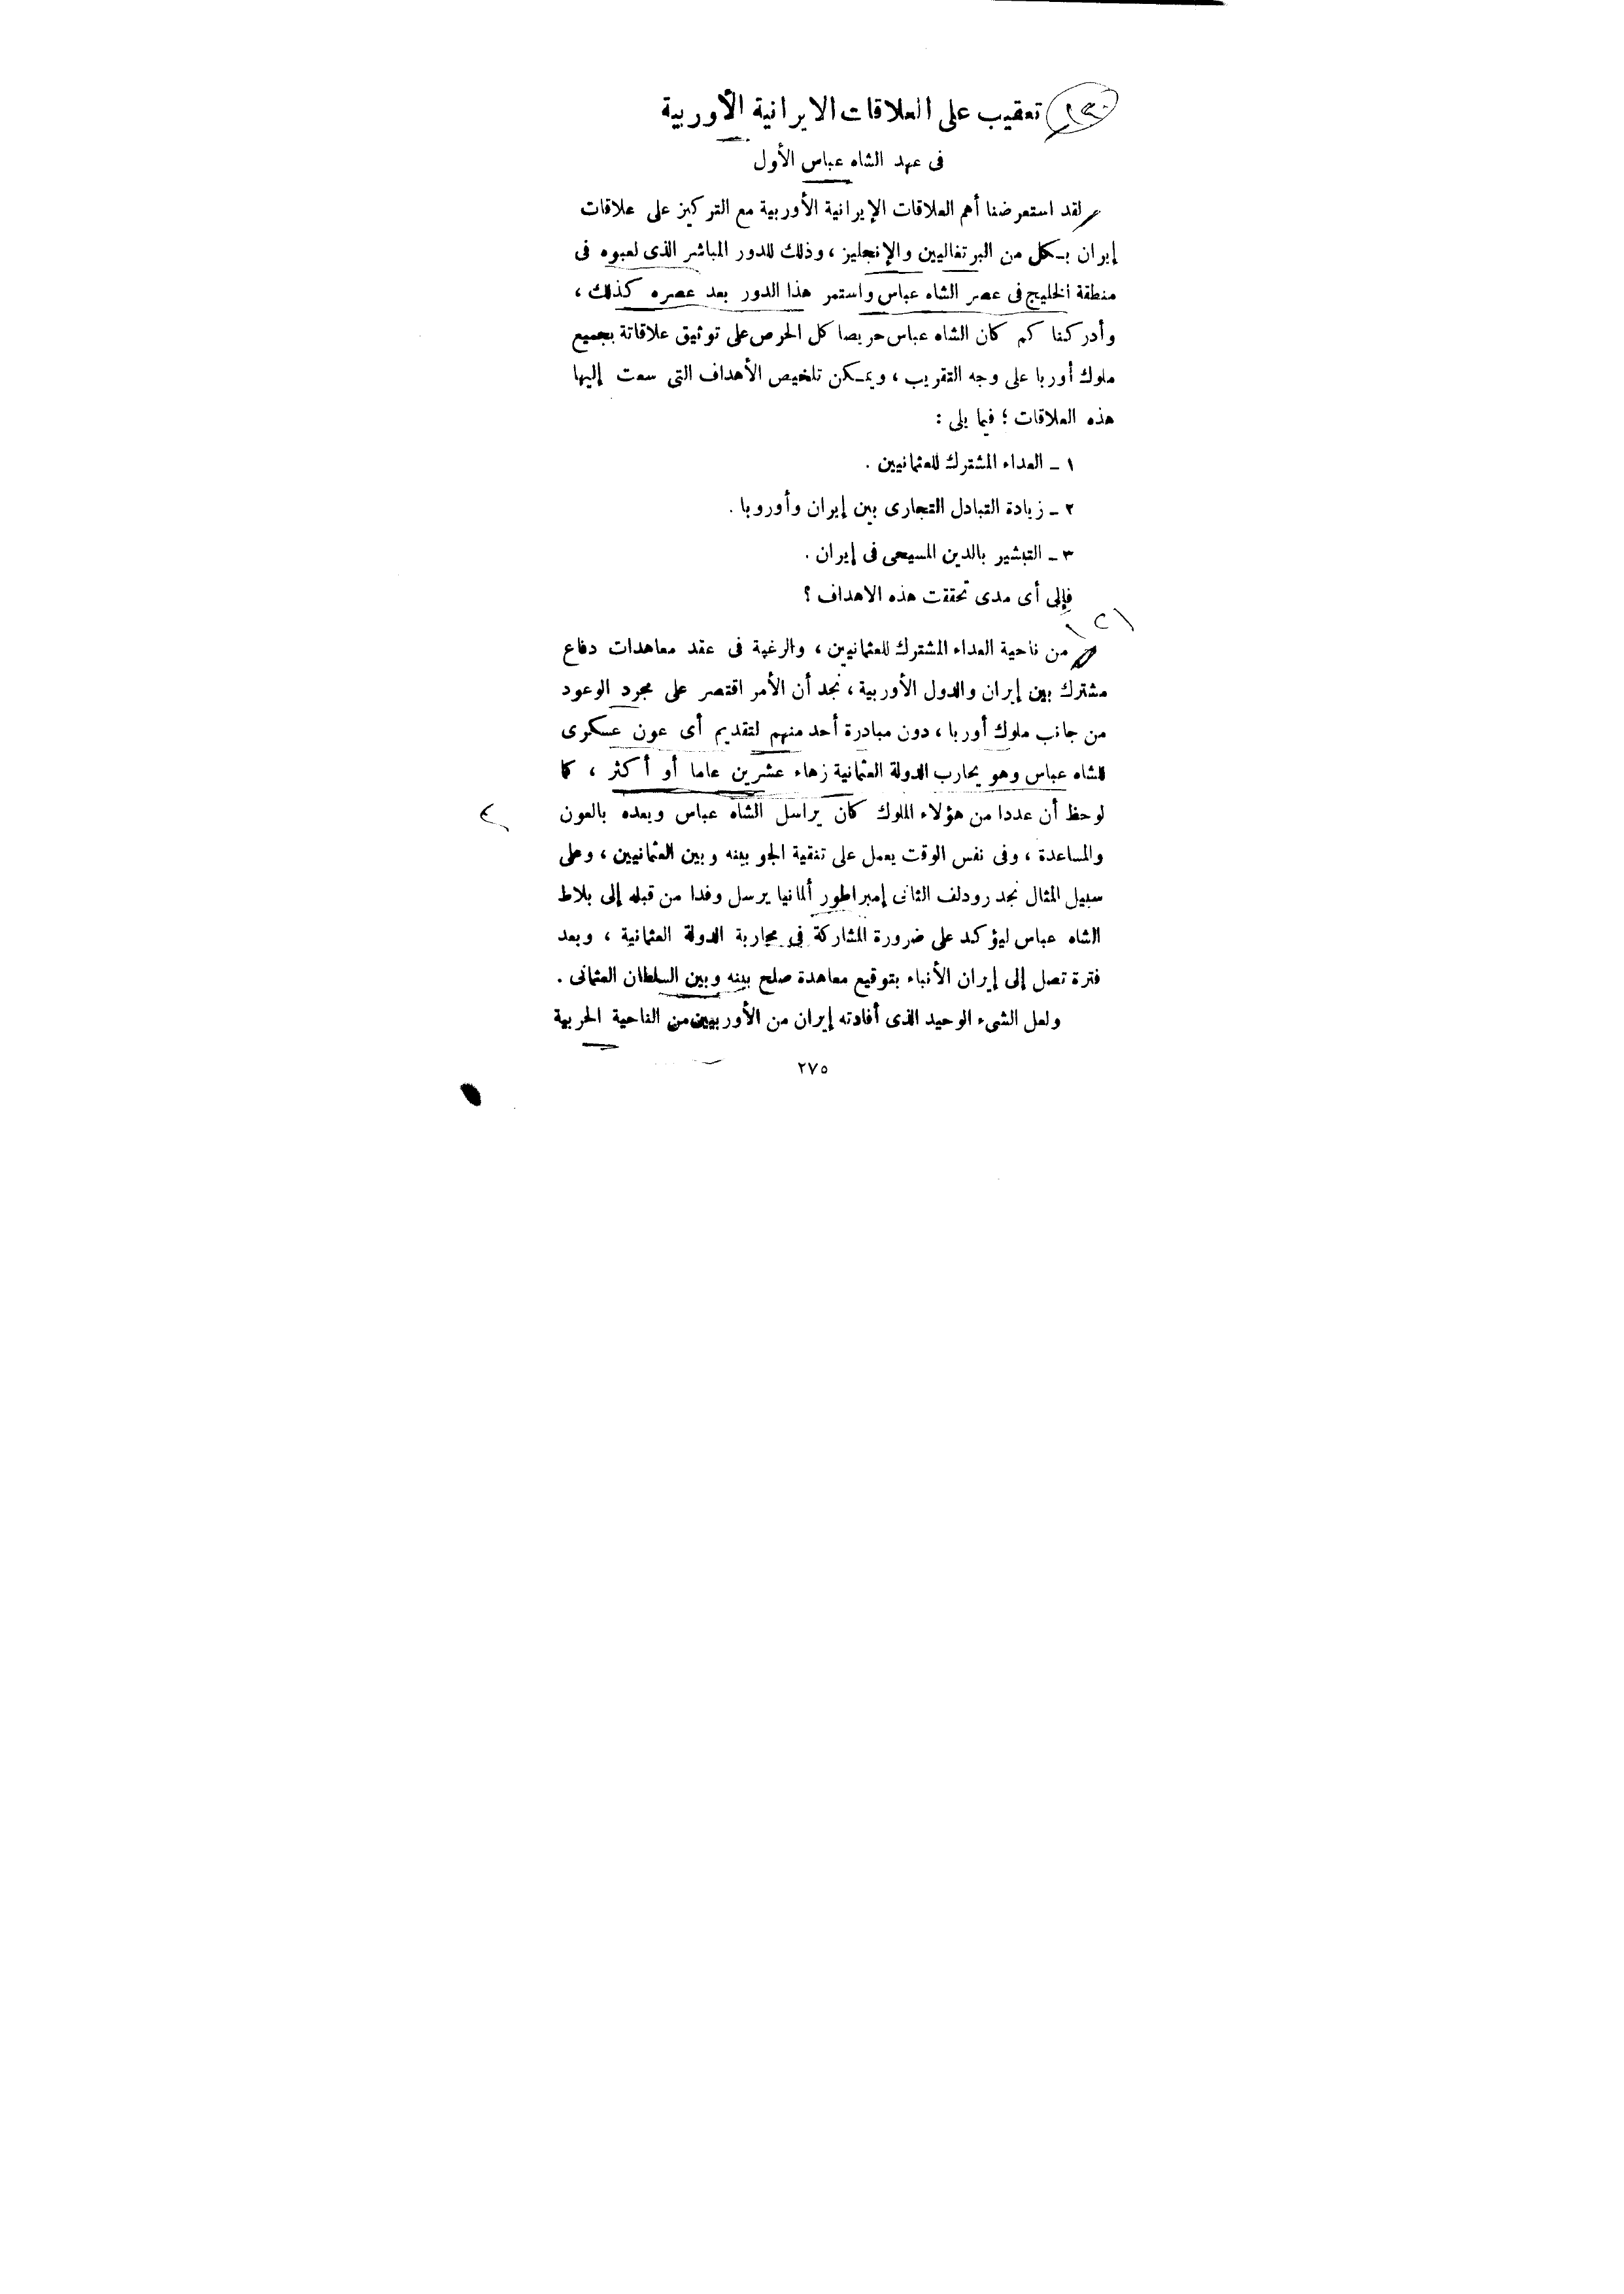 تعقيب على العلاقات الايرانية الأوربية
فى عهد الشاه عباس الأول
لقد استعرضنا أهم العلاقات الإيرانية الأوربية مع التركيز على علاقات
إيران بكل من البرتغاليين والإنجليز ، وذلك للدور المباشر الذى لعبوه فى
منطقة الخليج فى عصر الشاه عباس واستمر هذا الدور بعد عصره كذلك ،
وأدركنا كم كان الشاه عباس حريصا كل الحرص على توثيق علاقاتة بجميع
ملوك أوربا على وجه التقريب ، ويمكن تلخيص الأهداف التى سعت إليها
هذه العلاقات ؛ فيما يلى :
١ ـ العداء المشترك للعثمانيين .
٢ ـ زيادة التبادل التجارى بين إيران وأوروبا .
٣ ـ التبشير بالدين المسيحى فى إيران .
فإلى أى مدى تحققت هذه الاهداف ؟
من ناحية العداء المشترك للعثمانيين ، والرغبة فى عقد معاهدات دفاع
مشترك بين إيران والدول الأوربية ، نجد أن الأمر اقتصر على مجرد الوعود
من جانب ملوك أوربا ، دون مبادرة أحد منهم لتقديم أى عون عسكرى
للشاه عباس وهو يحارب الدولة العثمانية زهاء عشرين عاما أو أكثر ، كما
لوحظ أن عددا من هؤلاء الملوك كان يراسل الشاه عباس ويعده بالعون
والمساعدة ، وفى نفس الوقت يعمل على تنقية الجو بينه وبين العثمانيين ، وعلى
سبيل المثال نجد رودلف الثانى إمبراطور ألمانيا يرسل وفدا من قبله إلى بلاط
الشاه عباس ليؤكد على ضرورة المشاركة فى محاربة الدولة العثمانية ، وبعد
فترة تصل إلى إيران الأنباء بتوقيع معاهدة صلح بينه وبين السلطان العثمانى .
ولعل الشىء الوحيد الذى أفادته إيران من الأوربيين من الناحية الحربية
٢٧٥